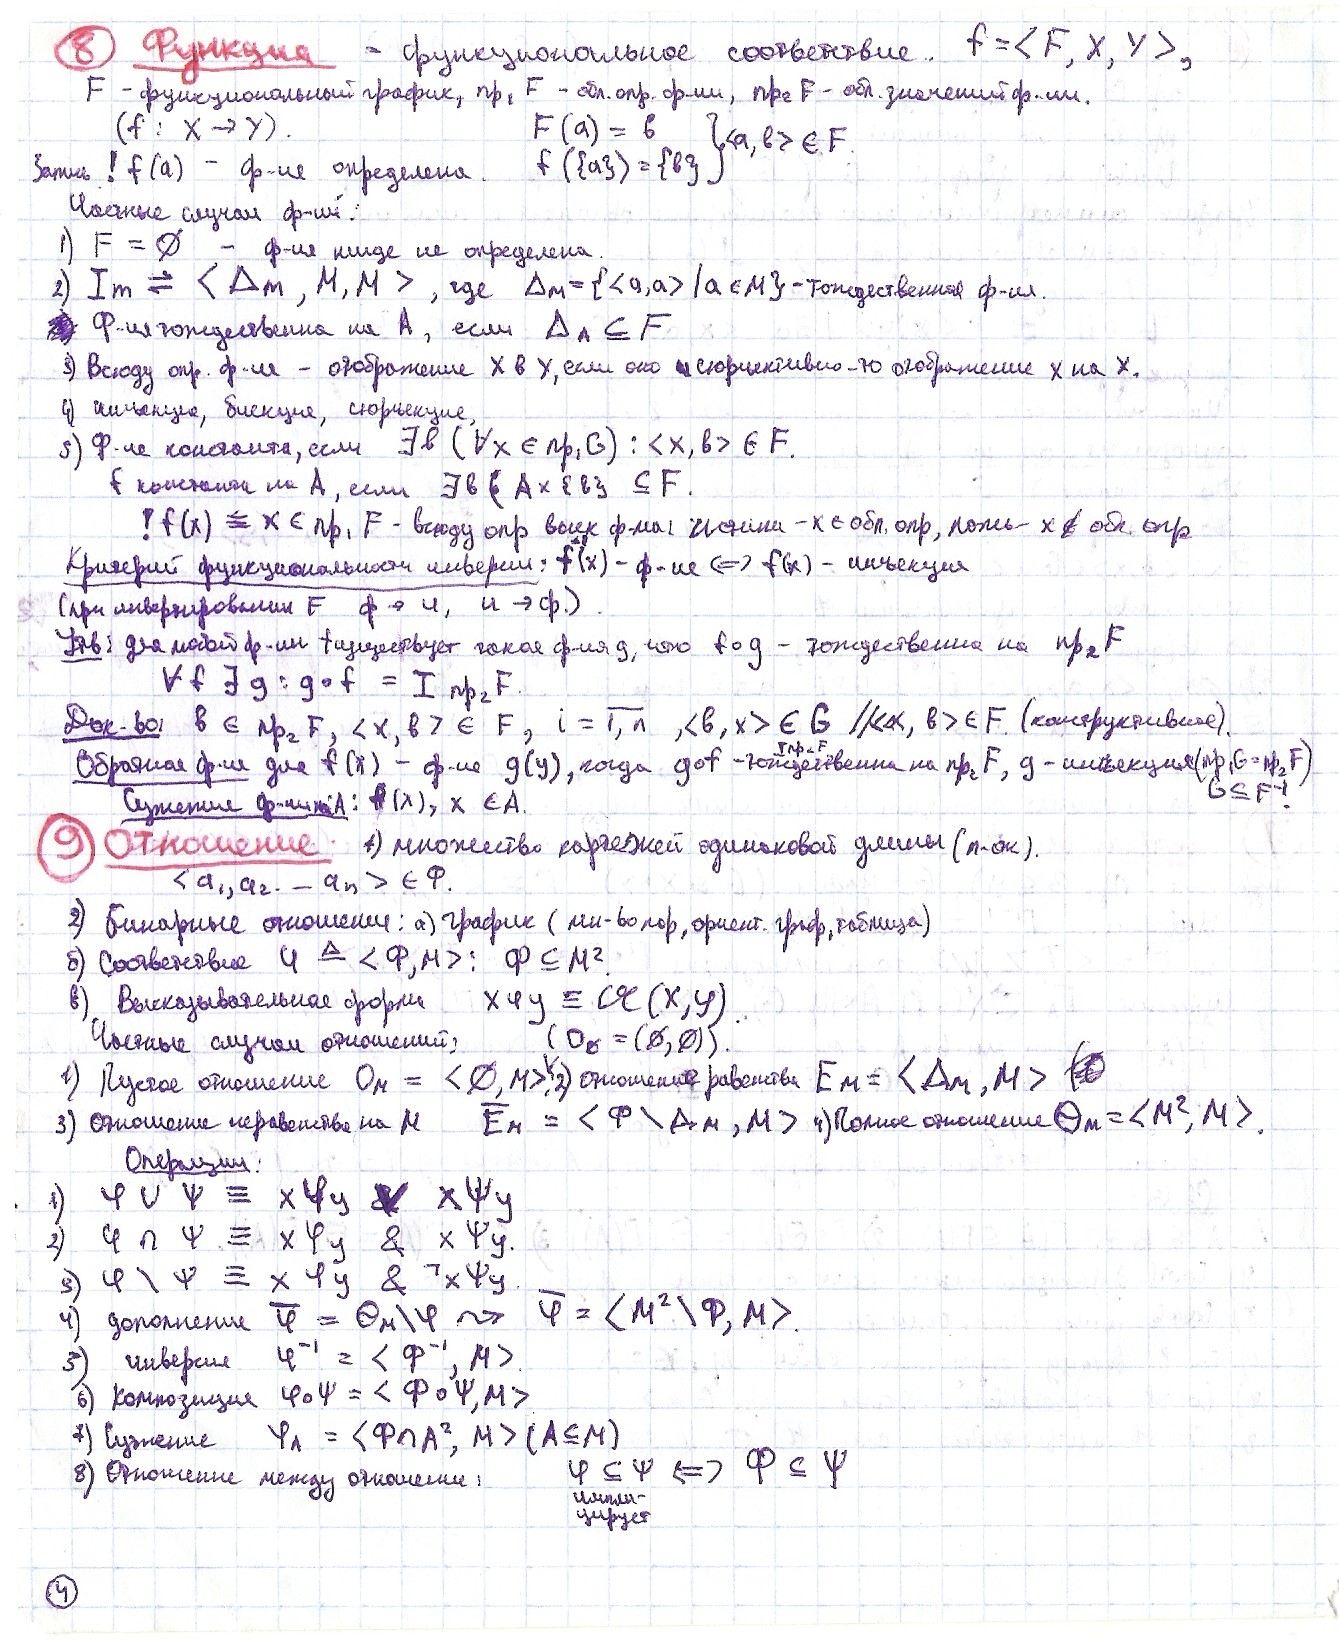 ⑧ Функция - функциональное соответствие. f = <F, X, Y>,
F - функциональный график, пр₁ F - обл. опр. ф-ии, пр₂ F - обл. значений ф-ии.
(f : X → Y). F(a) = b } <a, b> ∈ F.
Запись !f(a) - ф-ия определена. f({a}) = {b}
Частные случаи ф-ий:
1) F = ∅ - ф-ия нигде не определена.
2) Iм ⇌ <Δм, M, M>, где Δм = {<a,a> / a ∈ M} - тождественная ф-ия.
Ф-ия тождественна на A, если Δ_A ⊆ F
3) Всюду опр. ф-ия - отображение X в Y, если оно и сюръективно - то отображение X на X.
4) инъекция, биекция, сюръекция,
5) Ф-ия константа, если ∃b (∀x ∈ пр₁ G) : <x, b> ∈ F.
f константа на A, если ∃b ( A × {b} ⊆ F.
!f(x) ≡ x ∈ пр₁ F - всюду опр выск ф-ма: истина - x ∈ обл. опр, ложь - x ∉ обл. опр
Критерий функциональности инверсии: f⁻¹(x) - ф-ия <=> f(x) - инъекция
(при инвертировании F ф → и, и → ф.).
Утв: для любой ф-ии f существует такая ф-ия g, что f∘g - тождественна на пр₂ F
∀f ∃g : g∘f = I пр₂ F.
Док-во: b ∈ пр₂ F, <x, b> ∈ F, i = 1, n, <b, x> ∈ G // <x, b> ∈ F. (конструктивное).
Обратная ф-ия для f(x) - ф-ия g(y), когда g∘f - тождественна на пр₂ F, g - инъекция (пр₁ G = пр₂ F)
I пр₂ F
G ⊆ F⁻¹.
Сужение ф-ии на A: f(x), x ∈ A.
⑨ Отношение. 1) множество кортежей одинаковой длины (n-ок).
<a₁, a₂. – aₙ> ∈ Φ.
2) Бинарные отношения: а) график (мн-во пар, ориент. граф, таблица)
б) Соответствие φ ≜ <Φ, M> : Φ ⊆ M².
в) Высказывательная форма xφy ≡ 𝒜(x, y).
Частные случаи отношений: (O∅ = (∅, ∅)).
1) Пустое отношение Oм = <∅, M>. 2) отношение равенства Eм = <Δм, M>
3) Отношение неравенства на M E̅м = <Φ \ Δм, M> 4) Полное отношение Θм = <M², M>.
Операции:
1) φ ∪ ψ ≡ xφy ∨ xψy
2) φ ∩ ψ ≡ xφy & xψy.
3) φ \ ψ ≡ xφy & ¬xψy.
4) дополнение φ̅ = Θм \ φ ⤳ φ̅ = <M² \ Φ, M>.
5) инверсия φ⁻¹ = <Φ⁻¹, M>.
6) Композиция φ∘ψ = <Φ∘Ψ, M>
7) Сужение φ_A = <Φ ∩ A², M> (A ⊆ M)
8) Отношение между отношени: φ ⊆ ψ <=> Φ ⊆ Ψ
импли-
цирует
④